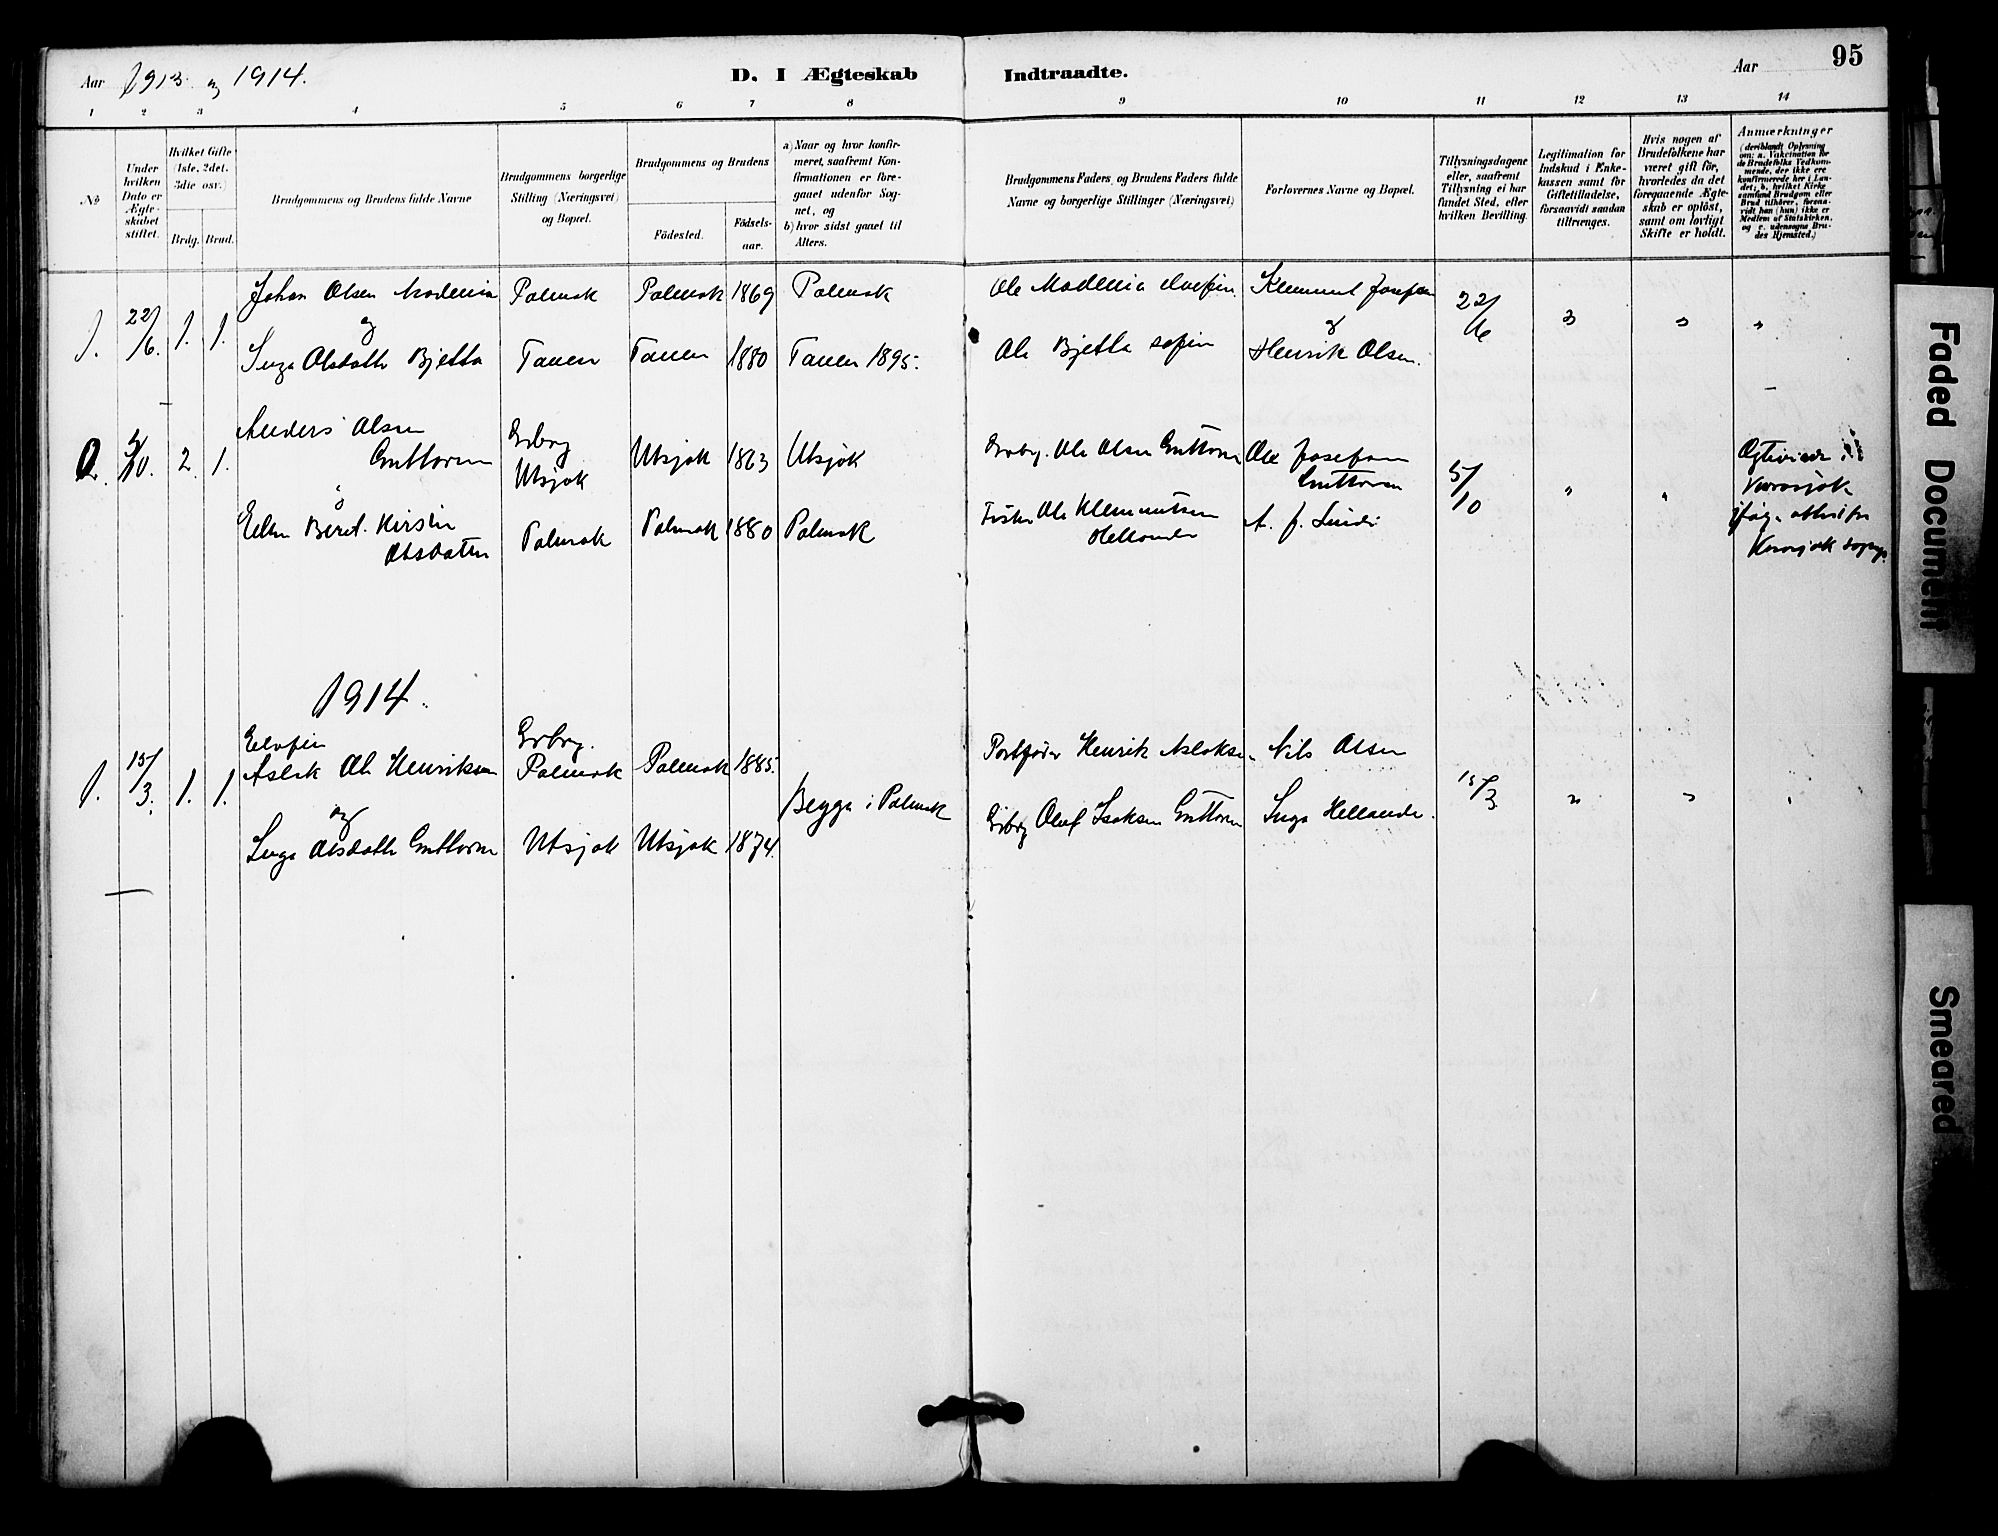 Aar 1913 og 1914.
D. I Ægteskab Indtraadte.
Aar 95
1 2 3 4 5 6 7 8 9 10 11 12 13 14
No
Under hvilken Dato er Ægteskabet stiftet.
Hvilket Gifte (1ste, 2det, 3die osv.)
Brdg. Brud.
Brudgommens og Brudens fulde Navne
Brudgommens borgerlige Stilling (Næringsvei) og Bopæl.
Brudgommens og Brudens
Födested.
Födselsaar.
a) Naar og hvor konfirmeret, saafremt Konfirmationen er foregaaet udenfor Sognet, og
b) hvor sidst gaaet til Alters.
Brudgommens Faders og Brudens Faders fulde Navne og borgerlige Stillinger (Næringsvei)
Forlovernes Navne og Bopæl.
Tillysningsdagene eller, saafremt Tillysning ei har fundet Sted, efter hvilken Bevilling.
Legitimation for Indskud i Enkekassen samt for Giftetilladelse, forsaavidt saadan tiltrænges.
Hvis nogen af Brudefolkene har været gift för, hvorledes da det foregaaende Ægteskab er oplöst, samt om lovligt Skifte er holdt.
Anmærkninger
(deriblandt Oplysning om: a. Vakcination for de Brudefolks Vedkommende, der ikke ere konfirmerede her i Landet, b. hvilket Kirkesamfund Brudgom eller Brud tilhörer, forsaavidt han (hun) ikke er Medlem af Statskirken, og c. udensogns Brudes Hjemsted.)
1. 22/6. 1. 1. Johan Olsen Madenia Polmak Polmak 1869 Polmak Ole Madenia Klemmet Josefsen 22/6 " " "
og
Inga Olsdatter Bjetta Tanen Tanen 1880 Tanen 1895. Ole Bjetta Henrik Olsen.
2. 5/10. 2. 1. Anders Olsen Guttorm Utsjok Utsjok 1863 Utsjok Ole Olsen Guttorm Ole Josefsen Guttorm 5/10 " "
Ellen Beret Kirstin Olsdatter Polmak Polmak 1880 Polmak Fisker Ole Klemmetsen Hellander
Karasjok
1914.
1. 15/3. 1. 1. Aslak Ole Henriksen Polmak Polmak 1885. Henrik Aslaksen Nils Olsen 15/3 " " "
og Begge i Polmak
Inga Olsdatter Guttorm Utsjok Utsjok 1874. Oluf Isaksen Guttorm Inga Hellander.
Faded Document
Smeared